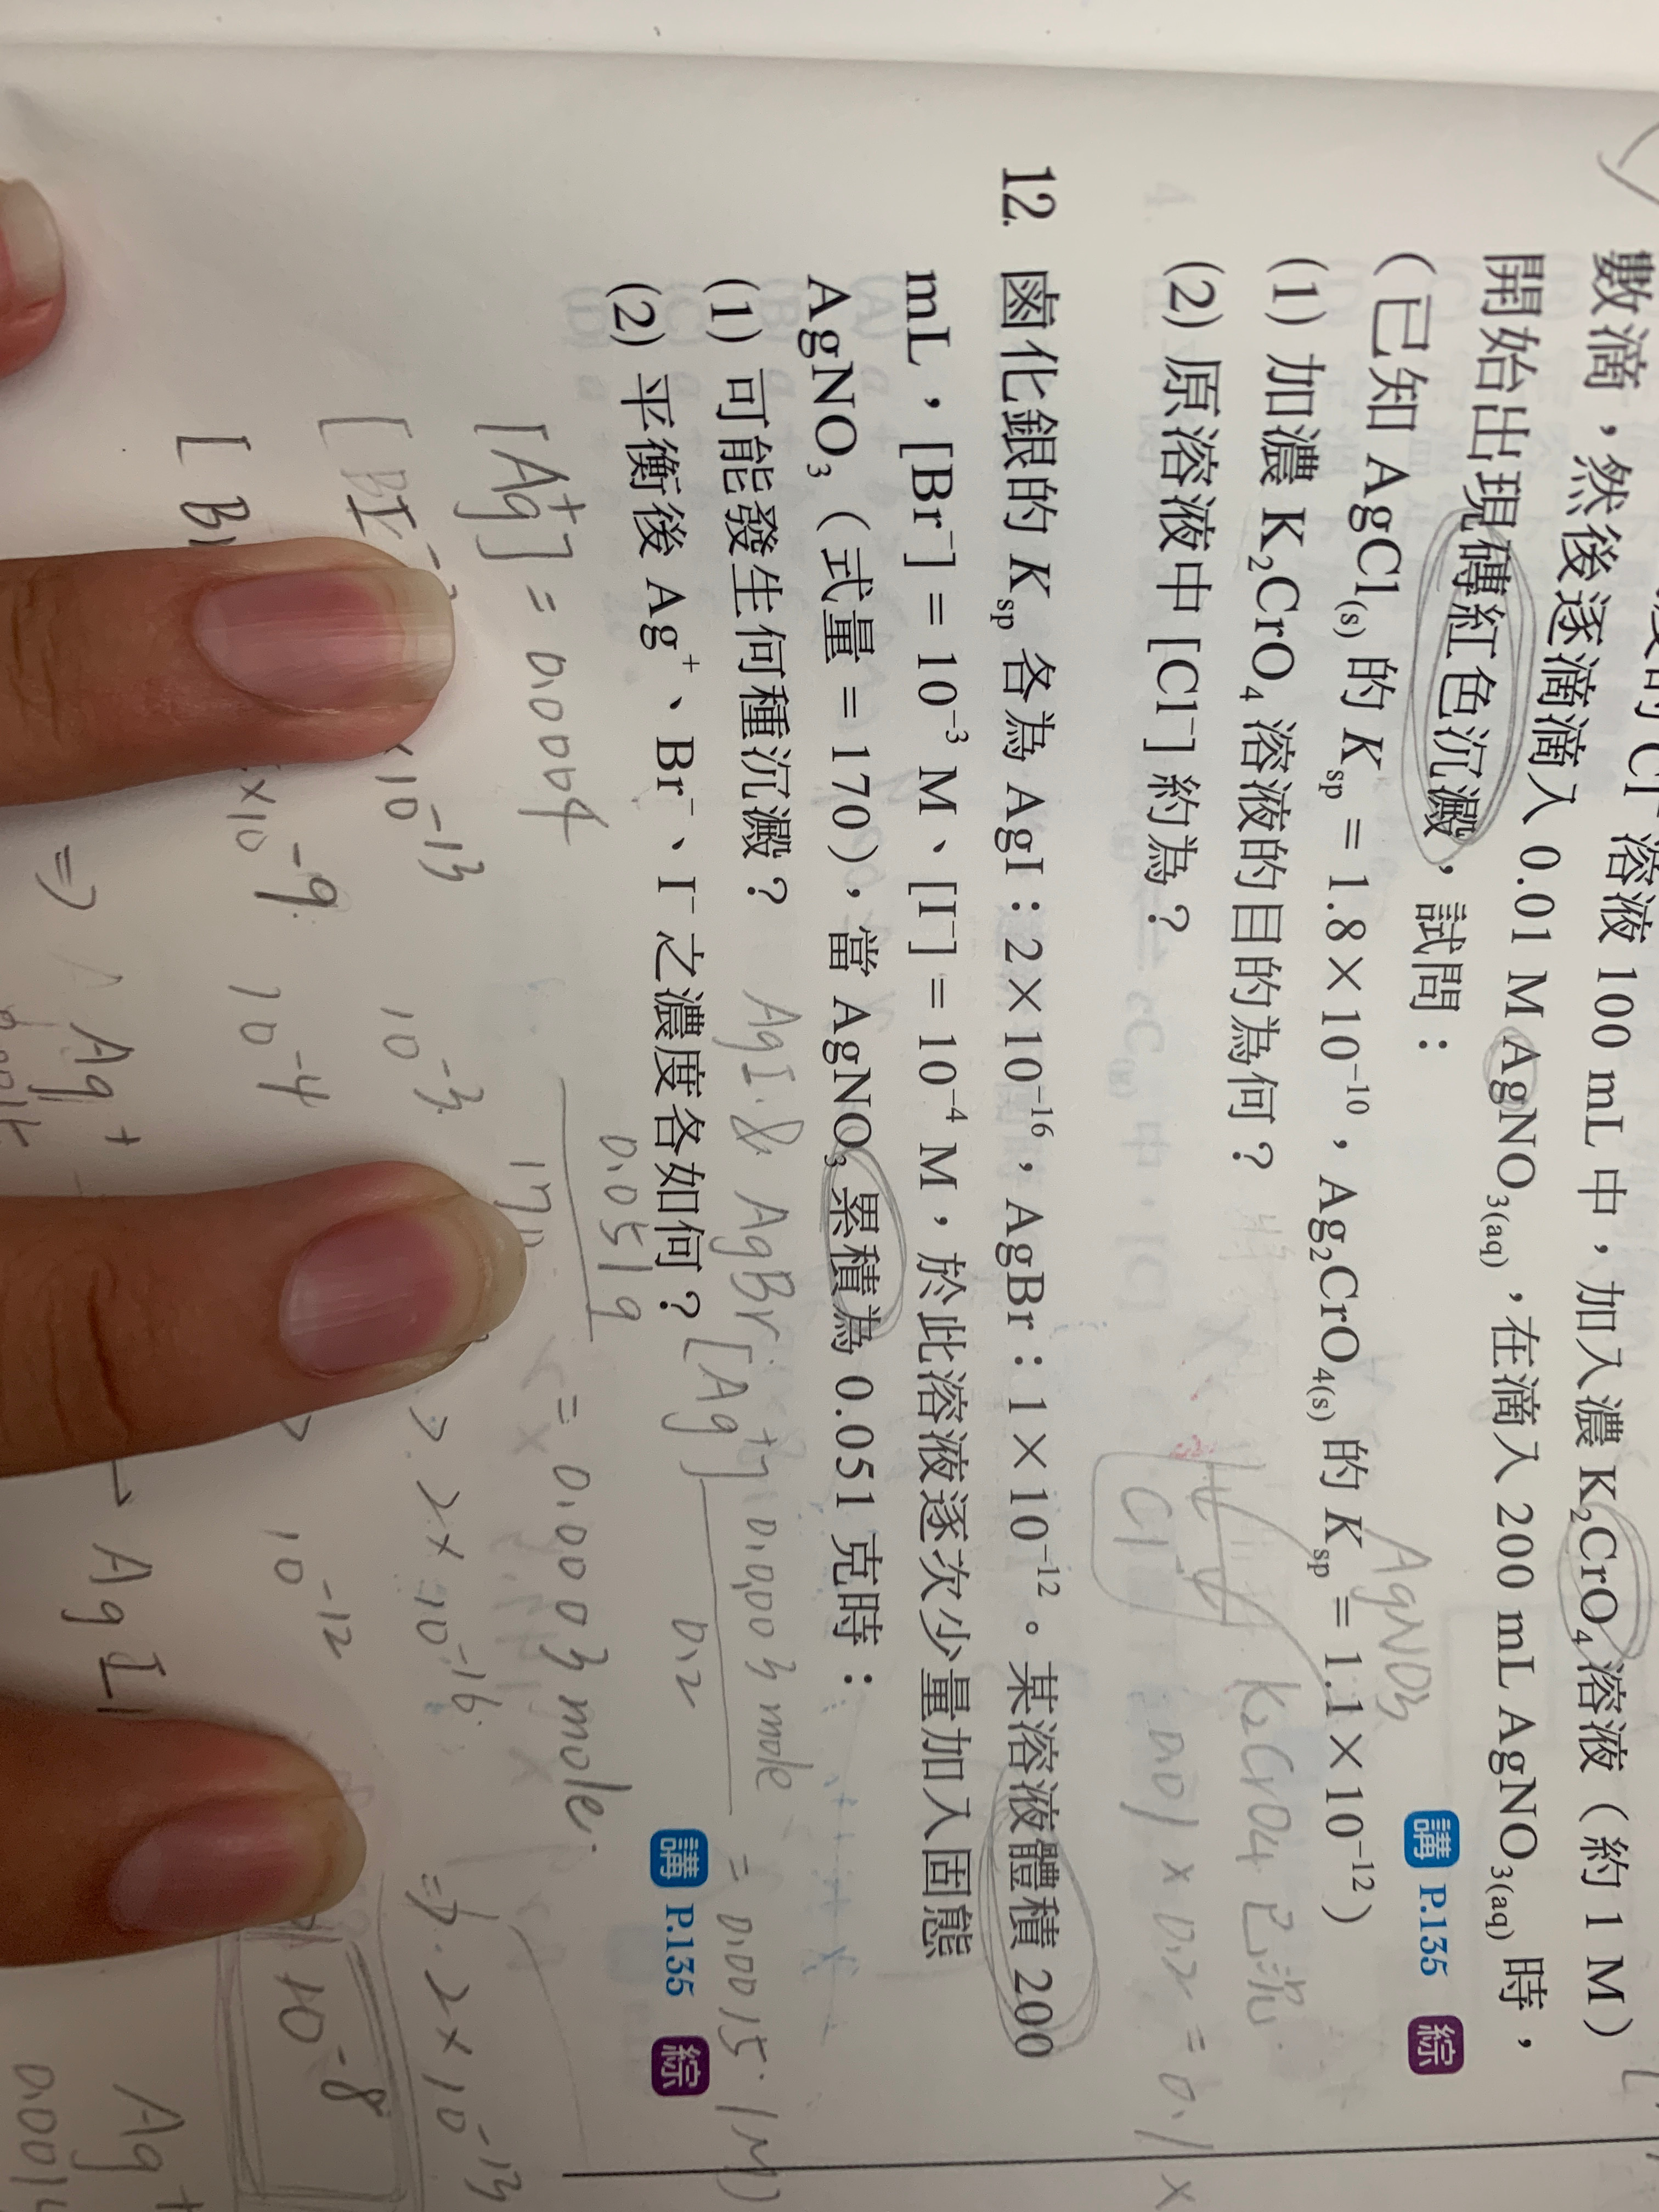 溶液 100 mL 中，加入濃 K₂CrO₄ 溶液（約 1 M）
數滴，然後逐滴滴入 0.01 M AgNO₃(aq)，在滴入 200 mL AgNO₃(aq) 時，
開始出現磚紅色沉澱，試問：
（已知 AgCl(s) 的 Ksp = 1.8×10⁻¹⁰，Ag₂CrO₄(s) 的 Ksp = 1.1×10⁻¹²）
講 P.135 綜
AgNO₃
(1) 加濃 K₂CrO₄ 溶液的目的為何？
K₂CrO₄
(2) 原溶液中 [Cl⁻] 約為？
Cl⁻
0.01×0.2=0.1×
12. 鹵化銀的 Ksp 各為 AgI：2×10⁻¹⁶，AgBr：1×10⁻¹²。某溶液體積 200
mL，[Br⁻] = 10⁻³ M、[I⁻] = 10⁻⁴ M，於此溶液逐次少量加入固態
AgNO₃（式量 = 170），當 AgNO₃ 累積為 0.051 克時：
(1) 可能發生何種沉澱？ AgI & AgBr
[Ag⁺] 0.0003 mole / 0.2 = 0.0015 M
(2) 平衡後 Ag⁺、Br⁻、I⁻ 之濃度各如何？
講 P.135 綜
0.051g / 170 = 0.0003 mole
[Ag⁺] =
×10⁻¹³ 10⁻³ > 2×10⁻¹⁶ ⇒ 2×10⁻¹³
×10⁻⁹ 10⁻⁴ > 10⁻¹² 10⁻⁸
⇒ Ag⁺ → AgI
Ag⁺